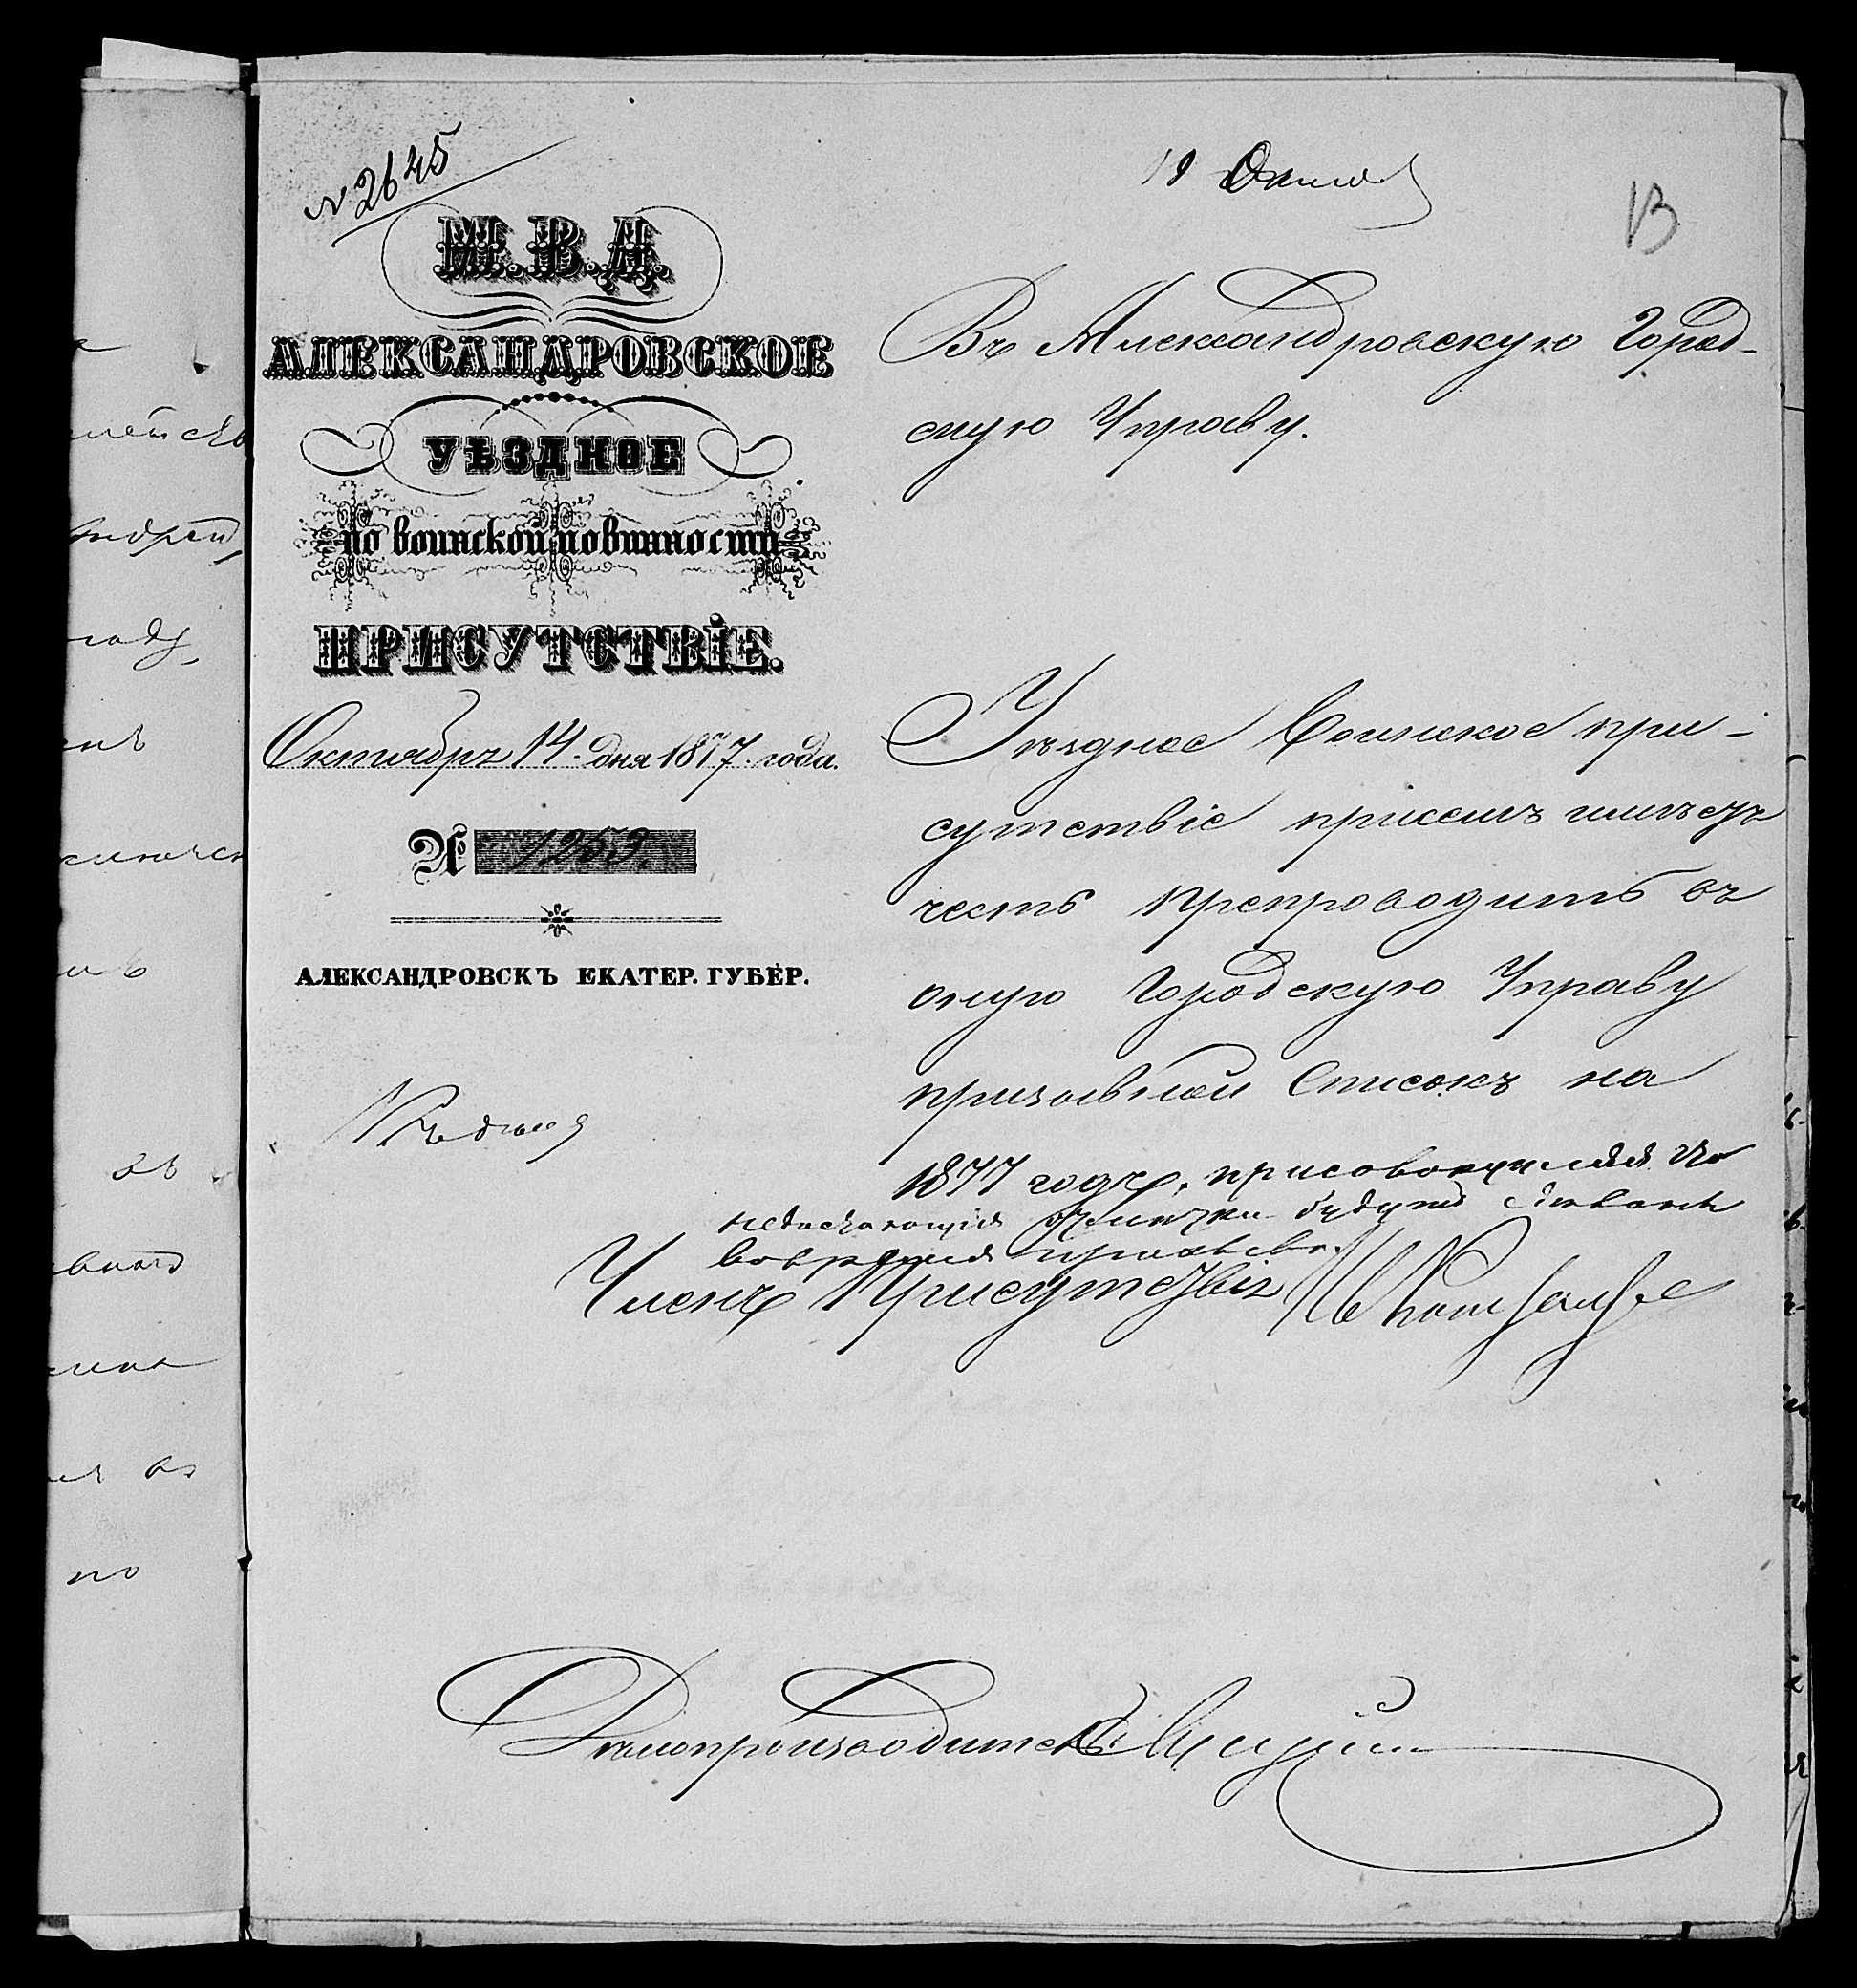 № 2645
19 Октяб
13
М.В.Д.
АЛЕКСАНДРОВСКОЕ
УѢЗДНОЕ
по воинской повинности
ПРИСУТСТВІЕ.
Октября 14 дня 1877 года.
№ 1253.
АЛЕКСАНДРОВСКЪ ЕКАТЕР. ГУБЕР.
Въ Александровскую Город-
скую Управу.
Уѣздное Воинское при-
сутствіе при семъ имѣетъ
честь препроводить въ
оную Городскую Управу
призывной списокъ на
1877 годъ, присовокупляя что
недостающія будутъ
вовремя призыва.
Членъ Присутствія
Дѣлопроизводитель